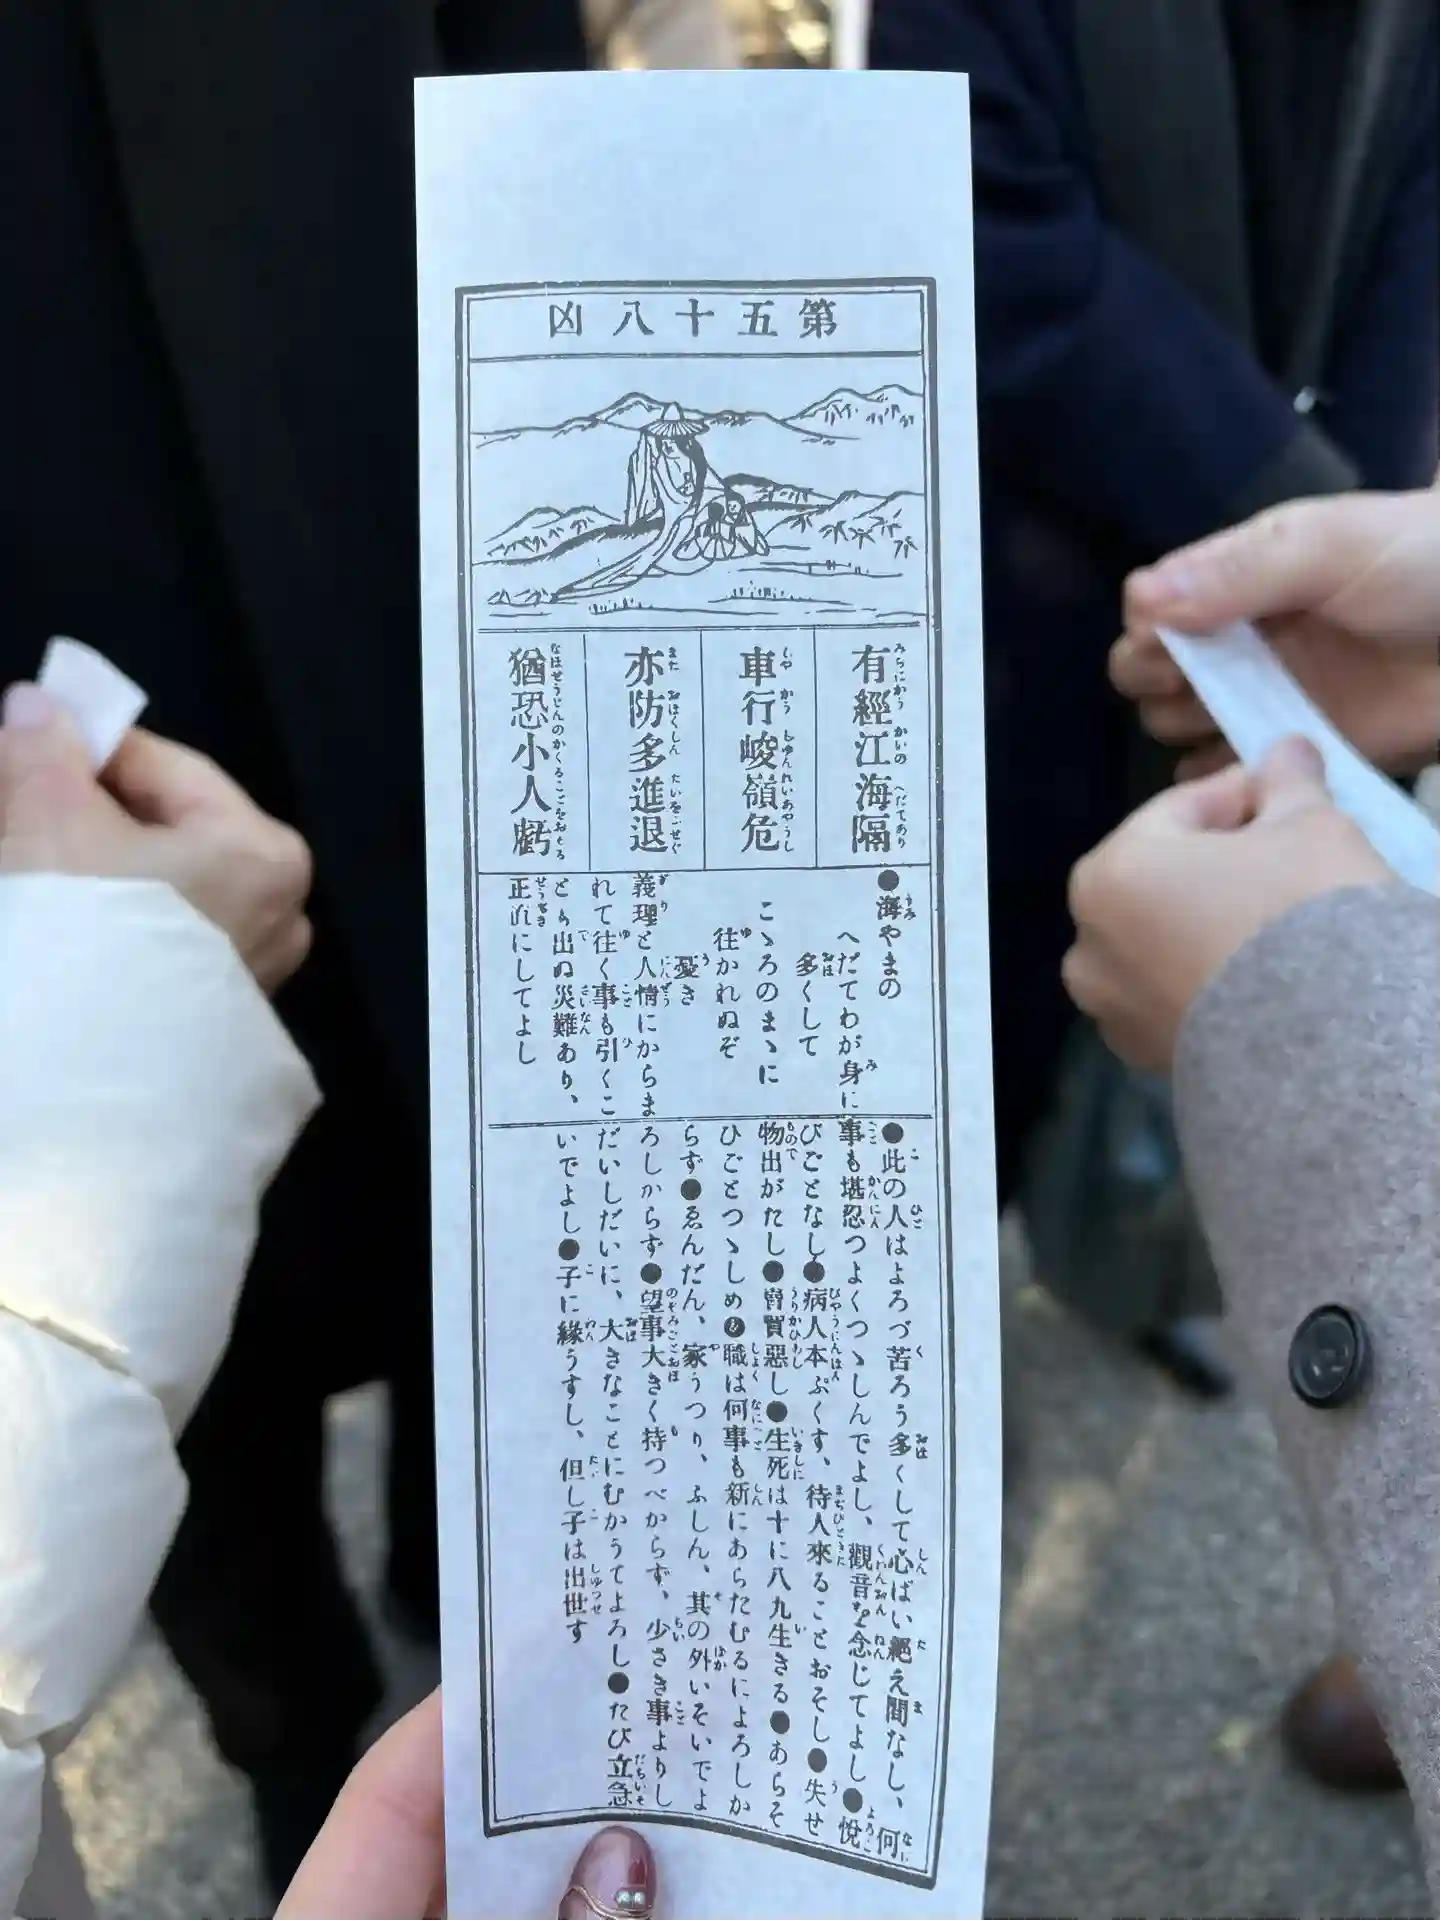 第五十八凶
有經江海隔
みちにかうかいのへだてあり
車行峻嶺危
しやかうしゆんれいあやうし
亦防多進退
またおほくしんたいをふせぐ
猶恐小人虧
なほせうじんのかくることをおそる
●海やまの
へだてわが身に
多くして
こゝろのまゝに
往かれぬぞ
憂き
義理と人情にからま
れて往く事も引くこ
とも出ぬ災難あり、
正直にしてよし
●此の人はよろづ苦ろう多くして心ばい絕え間なし、何
事も堪忍つよくつゝしんでよし、觀音を念じてよし●悅
びごとなし●病人本ぷくす、待人來ることおそし●失せ
物出がたし●賣買惡し●生死は十に八九生きる●あらそ
ひごとつゝしめ●職は何事も新にあらたむるによろしか
らず●ゑんだん、家うつり、ふしん、其の外いそいでよ
ろしからず●望事大きく持つべからず、少さき事よりし
だいしだいに、大きなことにむかうてよろし●たび立急
いでよし●子に緣うすし、但し子は出世す